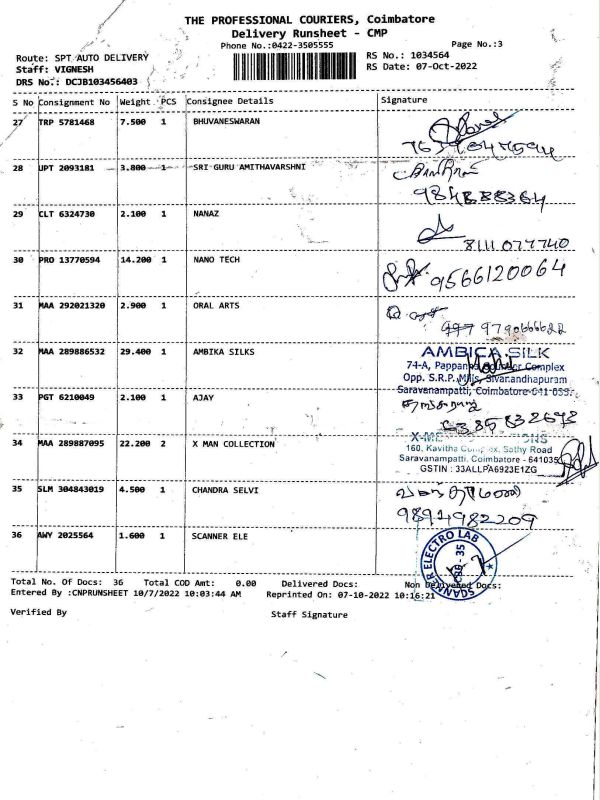 THE PROFESSIONAL COURIERS, Coimbatore
Delivery Runsheet - CMP
Phone No.:0422-3505555 Page No.:3
Route: SPT AUTO DELIVERY RS No.: 1034564
Staff: VIGNESH RS Date: 07-Oct-2022
DRS No.: DCJB103456403
S No Consignment No Weight PCS Consignee Details Signature
27 TRP 5781468 7.500 1 BHUVANESWARAN
28 UPT 2093181 3.800 1 SRI GURU AMITHAVARSHNI
29 CLT 6324730 2.100 1 NANAZ
8111077740
30 PRO 13770594 14.200 1 NANO TECH
9566120064
31 MAA 292021320 2.900 1 ORAL ARTS
9790666622
32 MAA 289886532 29.400 1 AMBIKA SILKS AMBICA SILK
74-A, Complex
Opp. S.R.P. Mills, Sivanandhapuram
Saravanampatti, Coimbatore-641 035.
33 PGT 6210049 2.100 1 AJAY
34 MAA 289887095 22.200 2 X MAN COLLECTION
160, Kavitha Complex, Sathy Road
Saravanampatti, Coimbatore - 641035
GSTIN : 33ALLPA6923E1ZG
35 SLM 304843019 4.500 1 CHANDRA SELVI
9894982209
36 AWY 2025564 1.600 1 SCANNER ELE
SCANNER ELECTRO LAB
CBE-35
Total No. Of Docs: 36 Total COD Amt: 0.00 Delivered Docs: Non Delivered Docs:
Entered By :CNPRUNSHEET 10/7/2022 10:03:44 AM Reprinted On: 07-10-2022 10:16:21
Verified By Staff Signature